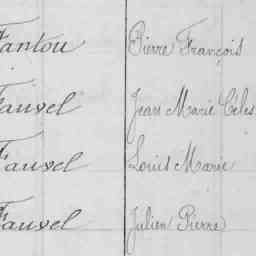 Fantou Pierre François
Fauvel Jean Marie Céles
Fauvel Louis Marie
Fauvel Julien Pierre